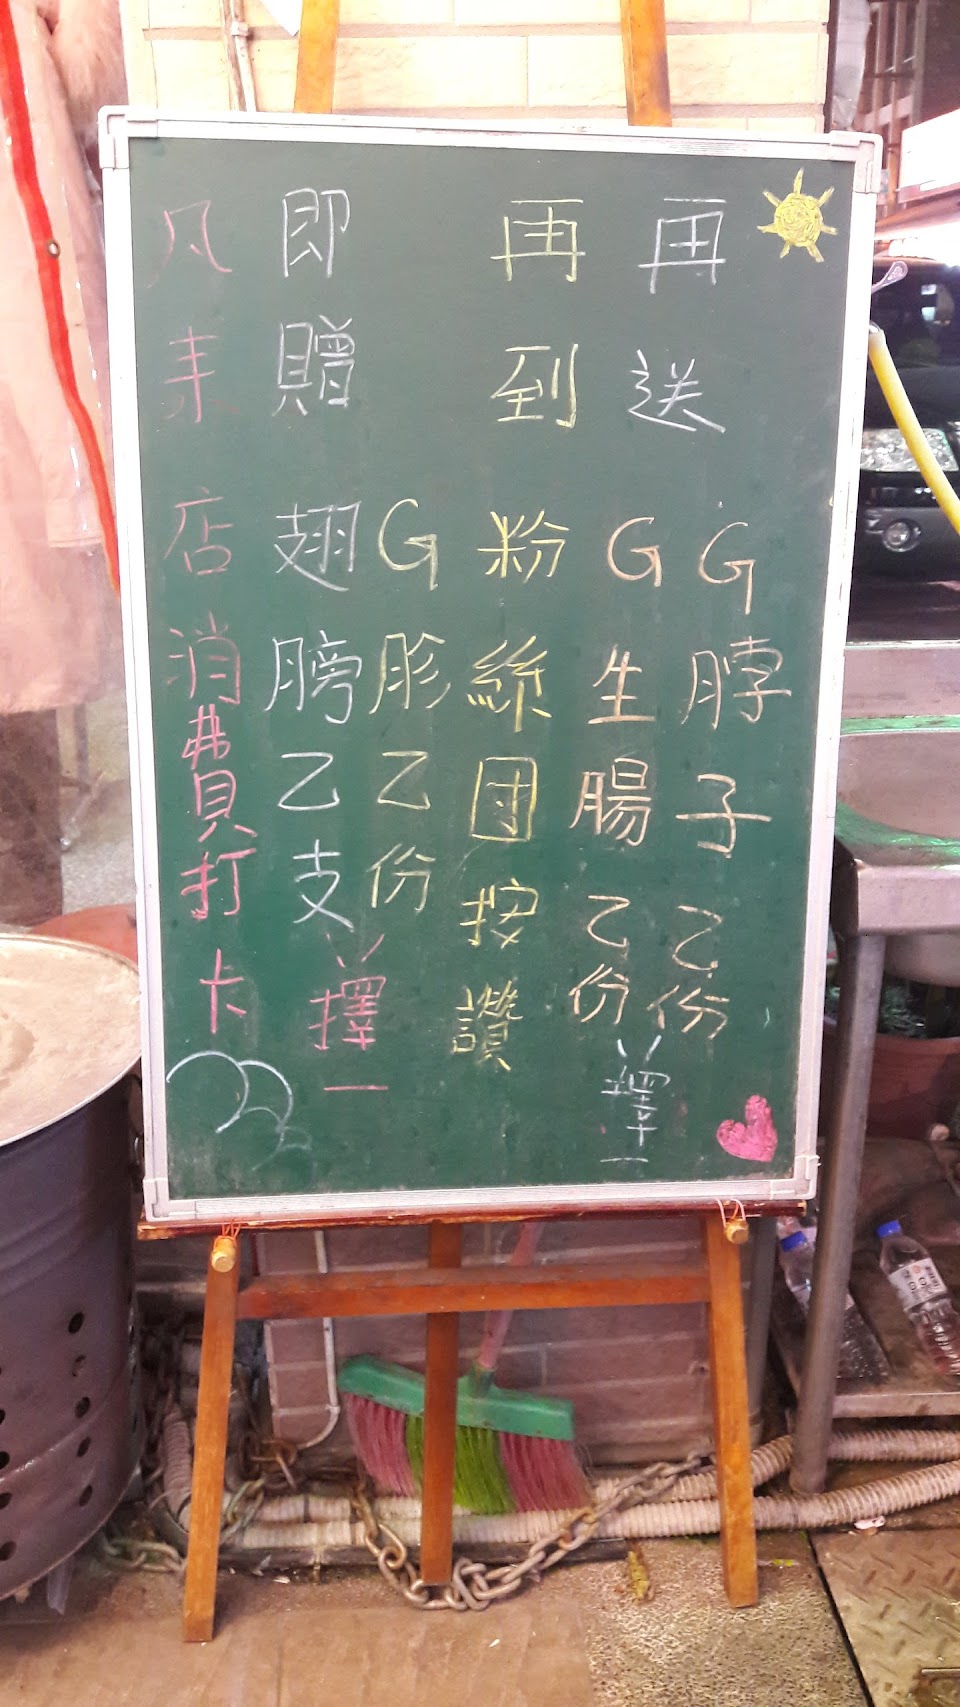 凡来店消費打卡
即贈
翅膀乙支
G胗乙份
擇一
再到粉絲団按讚
再送
G生腸乙份
G脖子乙份
擇一